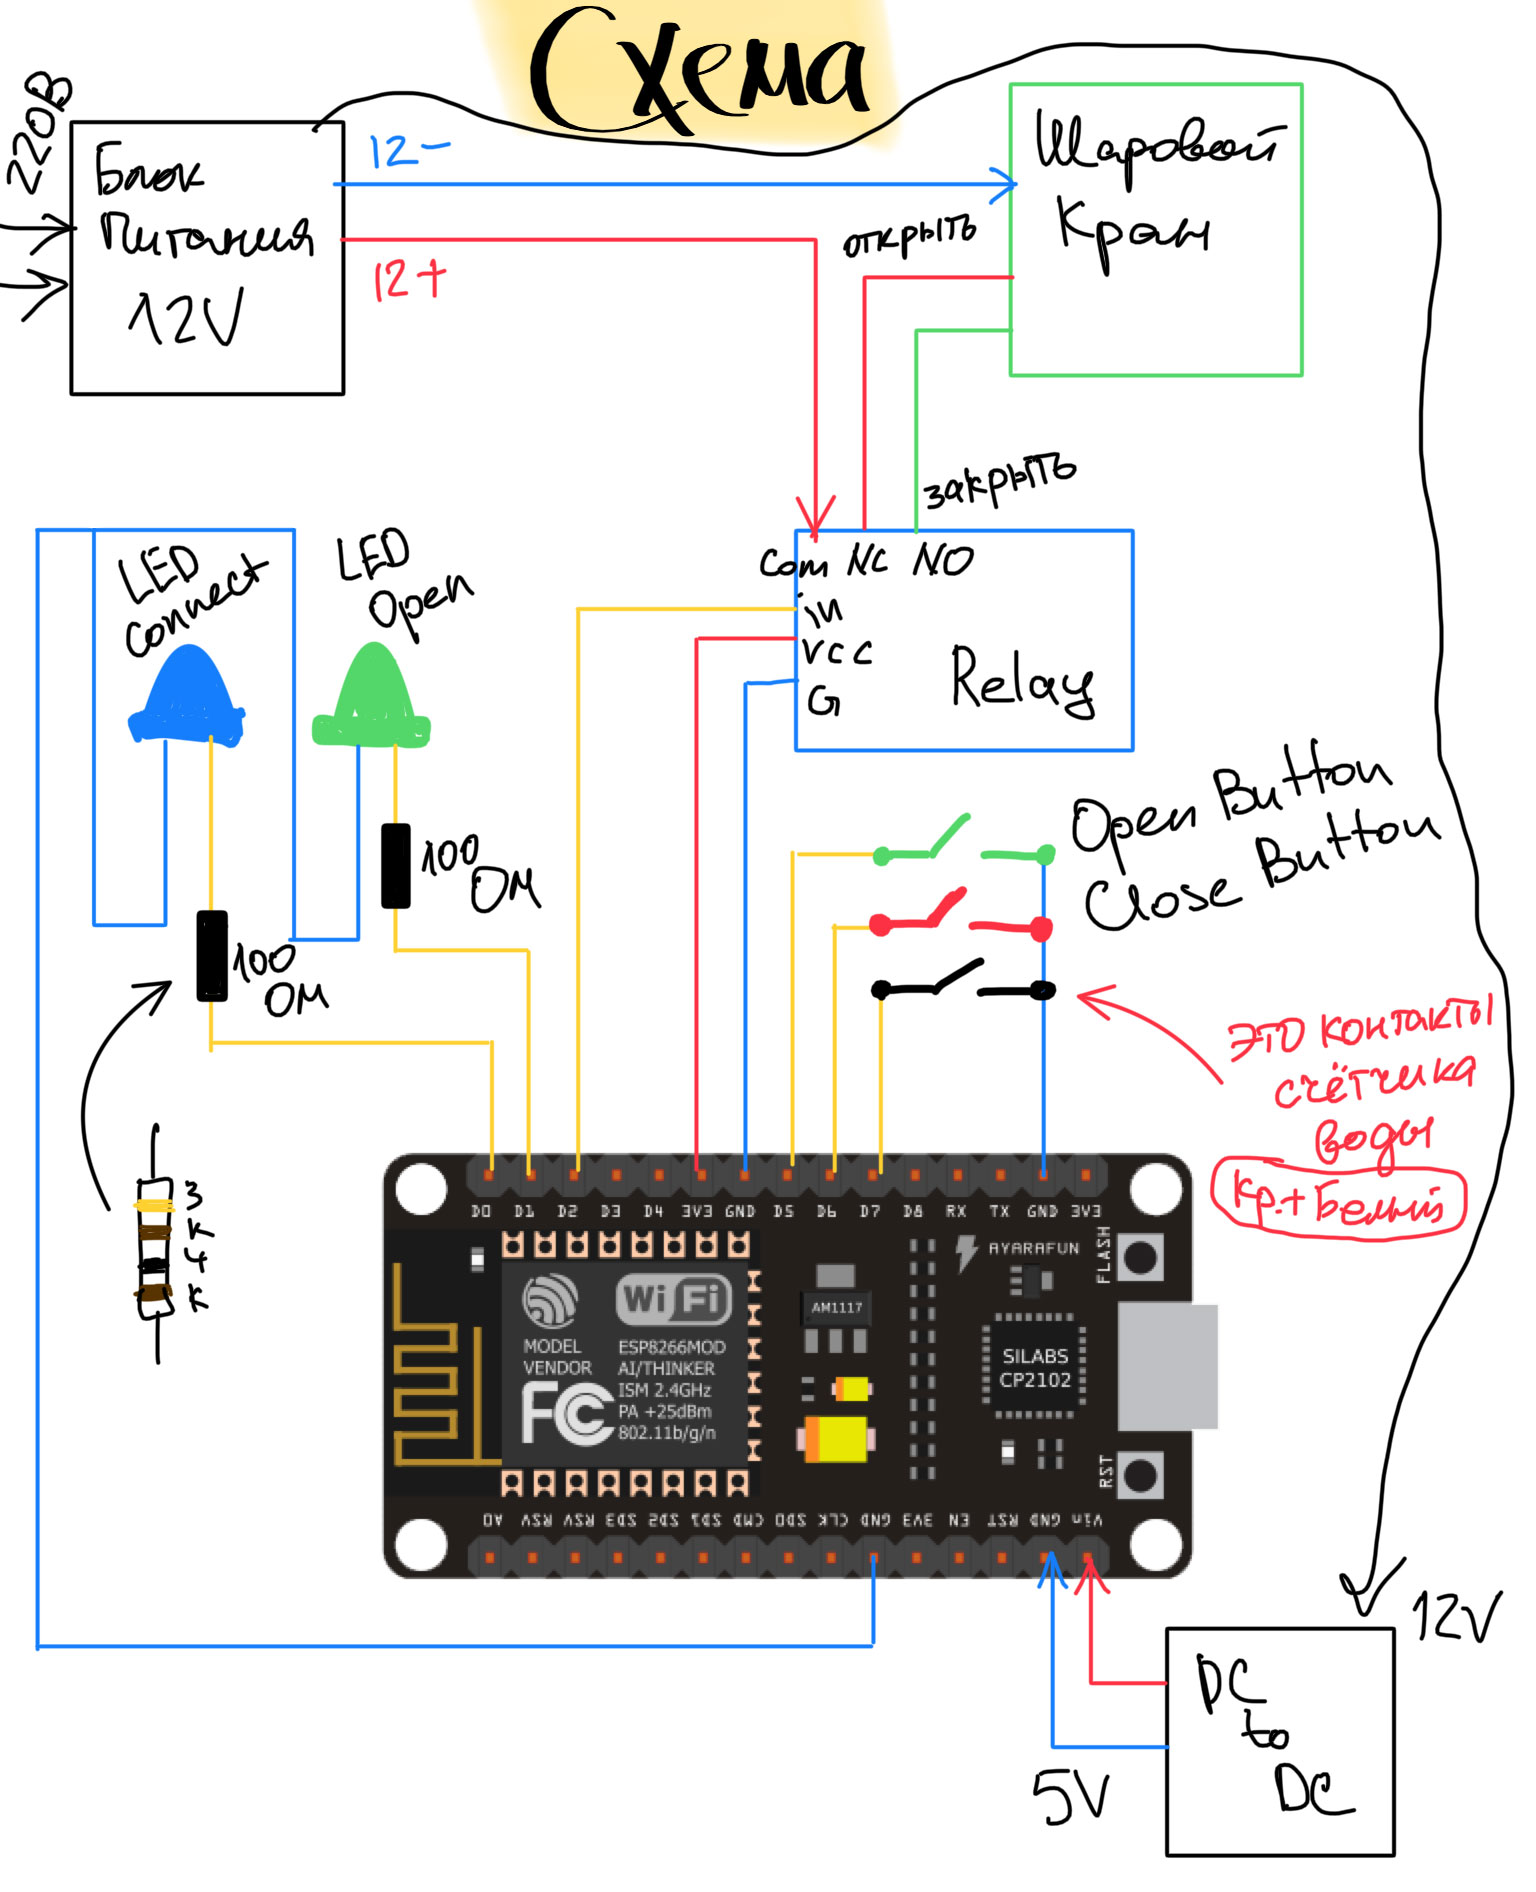 Схема
220В
Блок
Питания
12V
12-
12+
Шаровой
Кран
открыть
закрыть
Com NC NO
in
VCC
G
Relay
LED
Connect
LED
Open
100
ОМ
100
ОМ
Open Button
Close Button
это контакты
счётчика
воды
Кр.+Белый
З
К
Ч
К
D0 D1 D2 D3 D4 3V3 GND D5 D6 D7 D8 RX TX GND 3V3
AYARAFUN
FLASH
WiFi
MODEL ESP8266MOD
VENDOR AI/THINKER
ISM 2.4GHz
PA +25dBm
802.11b/g/n
FC
AM1117
SILABS
CP2102
RST
A0 RSV RSV SD3 SD2 SD1 CMD SD0 CLK GND 3V3 EN RST GND Vin
12V
DC
to
DC
5V